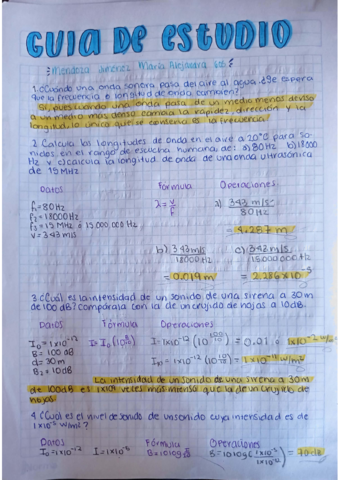 GUIA DE ESTUDIO
Mendoza Jimenez Maria Alejandra
1. ¿Cuando una onda sonora pasa del aire al agua, ¿Se espera
que la frecuencia o longitud de onda cambien?
Si, pues cuando una onda pasa de un medio menos denso
a un medio más denso cambia la rapidez, dirección y la
longitud, lo único que se conserva es la frecuencia.
2. Calcula las longitudes de onda en el aire a 20°C para so-
nidos en el rango de escucha humana de: a) 80Hz b) 18000
Hz y c) calcula la longitud de onda de una onda ultrasónica
de 15 MHz
Datos Fórmula Operaciones
f1= 80Hz
f2= 18000Hz
f3= 15 MHz ó 15,000,000 Hz
v= 343 m/s
λ = v/f
a) 343 m/s / 80 Hz
= 4.287 m
b) 343 m/s / 18000 Hz
= 0.019 m
c) 343 m/s / 15000000 Hz
= 2.286x10⁻⁵
3. ¿Cuál es la intensidad de un sonido de una sirena a 30m
de 100 dB? Compárala con la de un crujido de hojas a 10dB.
Datos Fórmula Operaciones
I₀= 1x10⁻¹²
B= 100 dB
d= 30m
B₂= 10dB
La intensidad de un sonido de una sirena a 30m
de 100dB es veces más intenso que la de un crujido de
hojas.
4. ¿Cuál es el nivel de sonido de un sonido cuya intensidad es de
Datos Fórmula Operaciones
I₀= 1x10⁻¹²
= 70 dB